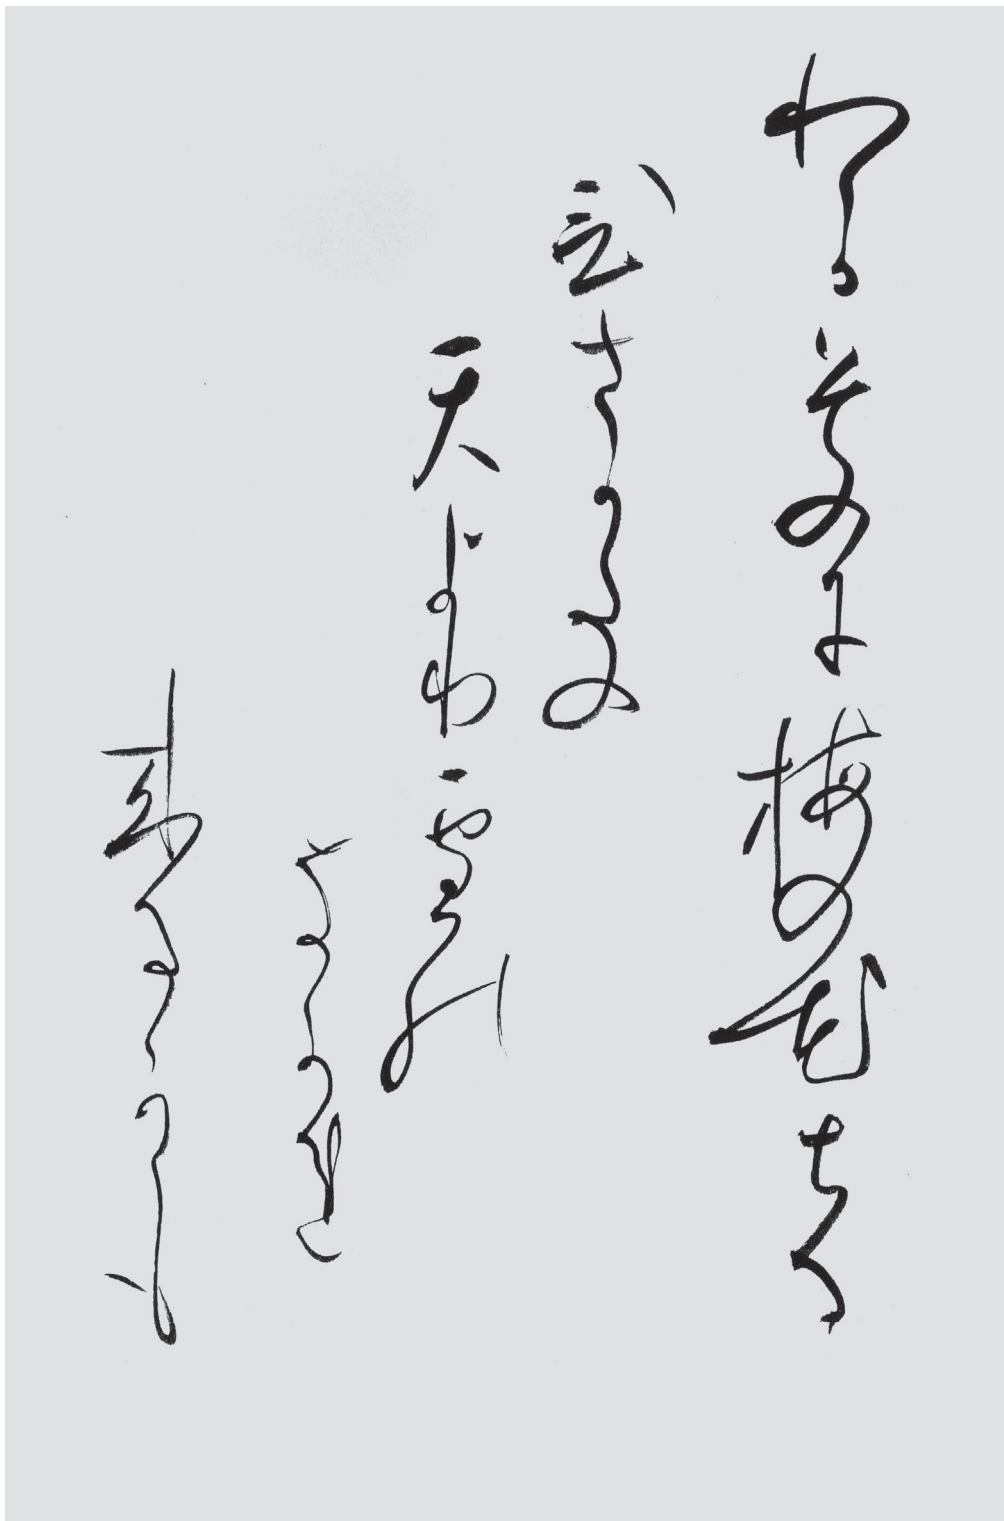 わかそのに梅の花ちる
ひさかたの
天より雪の
なかれ
来るかも